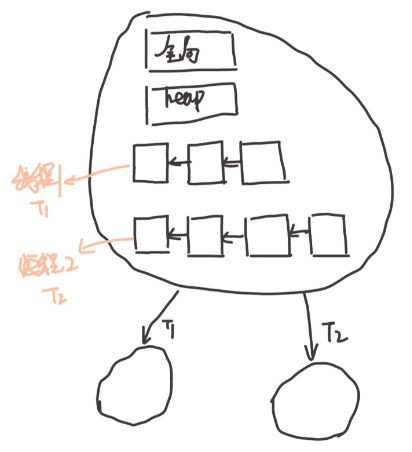 全局
heap
线程1
T1
线程2
T2
T1
T2